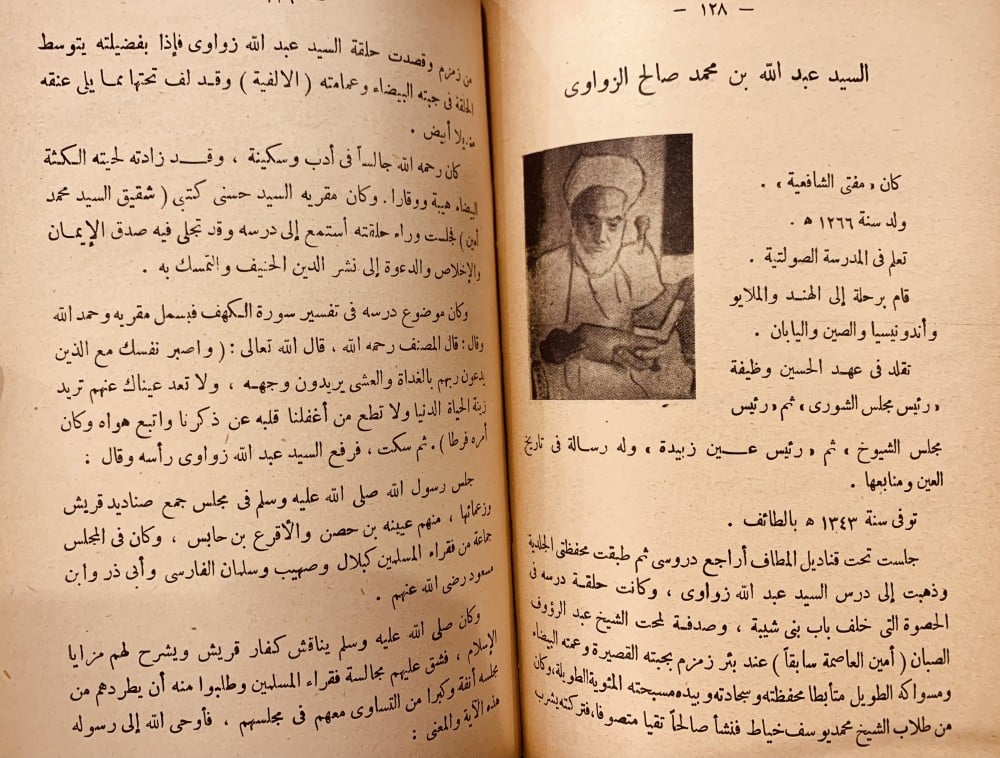 — ١٢٨ —
السيد عبد الله بن محمد صالح الزواوى
كان « مفتى الشافعية » .
ولد سنة ١٢٦٦ ه .
تعلم فى المدرسة الصولتية .
قام برحلة إلى الهند والملايو
وأندونيسيا والصين واليابان .
تقلد فى عهد الحسين وظيفة
« رئيس مجلس الشورى » ثم « رئيس
مجلس الشيوخ » ثم « رئيس عين زبيدة » وله رسالة فى تاريخ
العين ومنابعها .
توفى سنة ١٣٤٣ ه بالطائف .
جلست تحت قناديل المطاف أراجع دروسى ثم طبقت محفظتى الجلدية
وذهبت إلى درس السيد عبد الله زواوى ، وكانت حلقة درسه فى
الحصوة التى خلف باب بنى شيبة ، وصدفة لمحت الشيخ عبد الرؤوف
الصبان ( أمين العاصمة سابقاً ) عند بئر زمزم بجبته القصيرة وعمته البيضاء
ومسواكه الطويل متأبطا محفظته وسجادته وبيده مسبحته المئوية الطويلة، وكان
من طلاب الشيخ محمد يوسف خياط فنشأ صالحاً تقيا متصوفا، فتركته يشرب
من زمزم وقصدت حلقة السيد عبد الله زواوى فإذا بفضيلته يتوسط
الحلقة فى جبته البيضاء وعمامته ( الالفية ) وقد لف تحتها مما يلى عنقه
منديلا أبيض .
كان رحمه الله جالساً فى أدب وسكينة ، وقد زادته لحيته الكثة
البيضاء هيبة ووقارا . وكان مقريه السيد حسنى كتبى ( شقيق السيد محمد
أمين ) فجلست وراء حلقته أستمع إلى درسه وقد تجلى فيه صدق الإيمان
والإخلاص والدعوة إلى نشر الدين الحنيف والتمسك به .
وكان موضوع درسه فى تفسير سورة الكهف فبسمل مقريه وحمد الله
وقال : قال المصنف رحمه الله ، قال الله تعالى : ( واصبر نفسك مع الذين
يدعون ربهم بالغداة والعشى يريدون وجهه ، ولا تعد عيناك عنهم تريد
زينة الحياة الدنيا ولا تطع من أغفلنا قلبه عن ذكرنا واتبع هواه وكان
أمره فرطا ) . ثم سكت ، فرفع السيد عبد الله زواوى رأسه وقال :
جلس رسول الله صلى الله عليه وسلم فى مجلس جمع صناديد قريش
وزعمائها ، منهم عيينه بن حصن والأقرع بن حابس ، وكان فى المجلس
جماعة من فقراء المسلمين كبلال وصهيب وسلمان الفارسى وأبى ذر وابن
مسعود رضى الله عنهم .
وكان صلى الله عليه وسلم يناقش كفار قريش ويشرح لهم مزايا
الإسلام ، فشق عليهم مجالسة فقراء المسلمين وطلبوا منه أن يطردهم من
مجلسه أنفة وكبرا من التساوى معهم فى مجلسهم ، فأوحى الله إلى رسوله
هذه الآية والمعنى :